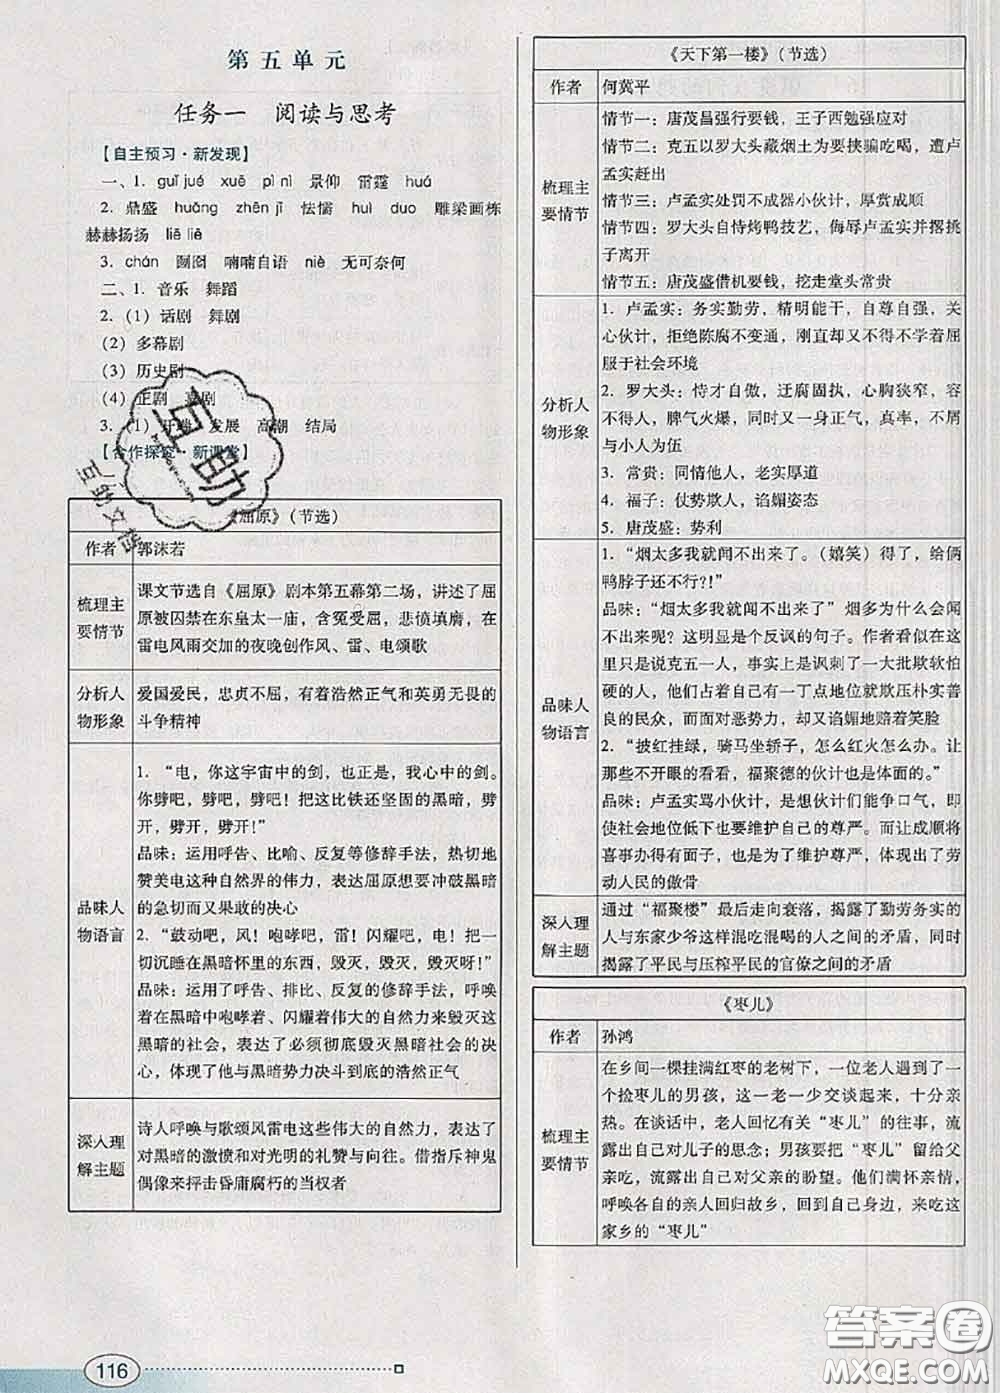 第五单元
任务一 阅读与思考
【自主预习·新发现】
一、1. guī jué xuē pì nì 景仰 雷霆 huá
2. 鼎盛 huāng zhēn jī 怯懦 huì duo 雕梁画栋
赫赫扬扬 liē liē
3. chán 囫囵 喃喃自语 niè 无可奈何
二、1. 音乐 舞蹈
2.（1）话剧 舞剧
（2）多幕剧
（3）历史剧
（4）正剧 喜剧
3.（1）开端 发展 高潮 结局
【合作探究·新课堂】
《屈原》（节选）
作者 郭沫若
梳理主要情节
课文节选自《屈原》剧本第五幕第二场，讲述了屈
原被囚禁在东皇太一庙，含冤受屈，悲愤填膺，在
雷电风雨交加的夜晚创作风、雷、电颂歌
分析人物形象
爱国爱民，忠贞不屈，有着浩然正气和英勇无畏的
斗争精神
品味人物语言
1.“电，你这宇宙中的剑，也正是，我心中的剑。
你劈吧，劈吧，劈吧！把这比铁还坚固的黑暗，劈
开，劈开，劈开！”
品味：运用呼告、比喻、反复等修辞手法，热切地
赞美电这种自然界的伟力，表达屈原想要冲破黑暗
的急切而又果敢的决心
2.“鼓动吧，风！咆哮吧，雷！闪耀吧，电！把一
切沉睡在黑暗怀里的东西，毁灭，毁灭，毁灭呀！”
品味：运用了呼告、排比、反复的修辞手法，呼唤
着在黑暗中咆哮着、闪耀着伟大的自然力来毁灭这
黑暗的社会，表达了必须彻底毁灭黑暗社会的决
心，体现了他与黑暗势力决斗到底的浩然正气
深入理解主题
诗人呼唤与歌颂风雷电这些伟大的自然力，表达了
对黑暗的激愤和对光明的礼赞与向往。借指斥神鬼
偶像来抨击昏庸腐朽的当权者
《天下第一楼》（节选）
作者 何冀平
梳理主要情节
情节一：唐茂昌强行要钱，王子西勉强应对
情节二：克五以罗大头藏烟土为要挟骗吃喝，遭卢
孟实赶出
情节三：卢孟实处罚不成器小伙计，厚赏成顺
情节四：罗大头自恃烤鸭技艺，侮辱卢孟实并撂挑
子离开
情节五：唐茂盛借机要钱，挖走堂头常贵
分析人物形象
1. 卢孟实：务实勤劳，精明能干，自尊自强，关
心伙计，拒绝陈腐不变通，刚直却又不得不学着屈
服于社会环境
2. 罗大头：恃才自傲，迂腐固执，心胸狭窄，容
不得人，脾气火爆，同时又一身正气，真率，不屑
与小人为伍
3. 常贵：同情他人，老实厚道
4. 福子：仗势欺人，谄媚姿态
5. 唐茂盛：势利
品味人物语言
1.“烟太多我就闻不出来了。（嬉笑）得了，给俩
鸭脖子还不行?!”
品味：“烟太多我就闻不出来了”烟多为什么会闻
不出来呢？这明显是个反讽的句子。作者看似在这
里只是说克五一人，事实上是讽刺了一大批欺软怕
硬的人，他们占着自己有一丁点地位就欺压朴实善
良的民众，而面对恶势力，却又谄媚地赔着笑脸
2.“披红挂绿，骑马坐轿子，怎么红火怎么办。让
那些不开眼的看看，福聚德的伙计也是体面的。”
品味：卢孟实骂小伙计，是想伙计们能争口气，即
使社会地位低下也要维护自己的尊严。而让成顺将
喜事办得有面子，也是为了维护尊严，体现出了劳
动人民的傲骨
深入理解主题
通过“福聚楼”最后走向衰落，揭露了勤劳务实的
人与东家少爷这样混吃混喝的人之间的矛盾，同时
揭露了平民与压榨平民的官僚之间的矛盾
《枣儿》
作者 孙鸿
梳理主要情节
在乡间一棵挂满红枣的老树下，一位老人遇到了一
个捡枣儿的男孩，这一老一少交谈起来，十分亲
热。在谈话中，老人回忆有关“枣儿”的往事，流
露出自己对儿子的思念；男孩要把“枣儿”留给父
亲吃，流露出自己对父亲的盼望。他们满怀亲情，
呼唤各自的亲人回归故乡，回到自己身边，来吃这
家乡的“枣儿”
116
互助
互助文档
答案圈
MXQE.COM